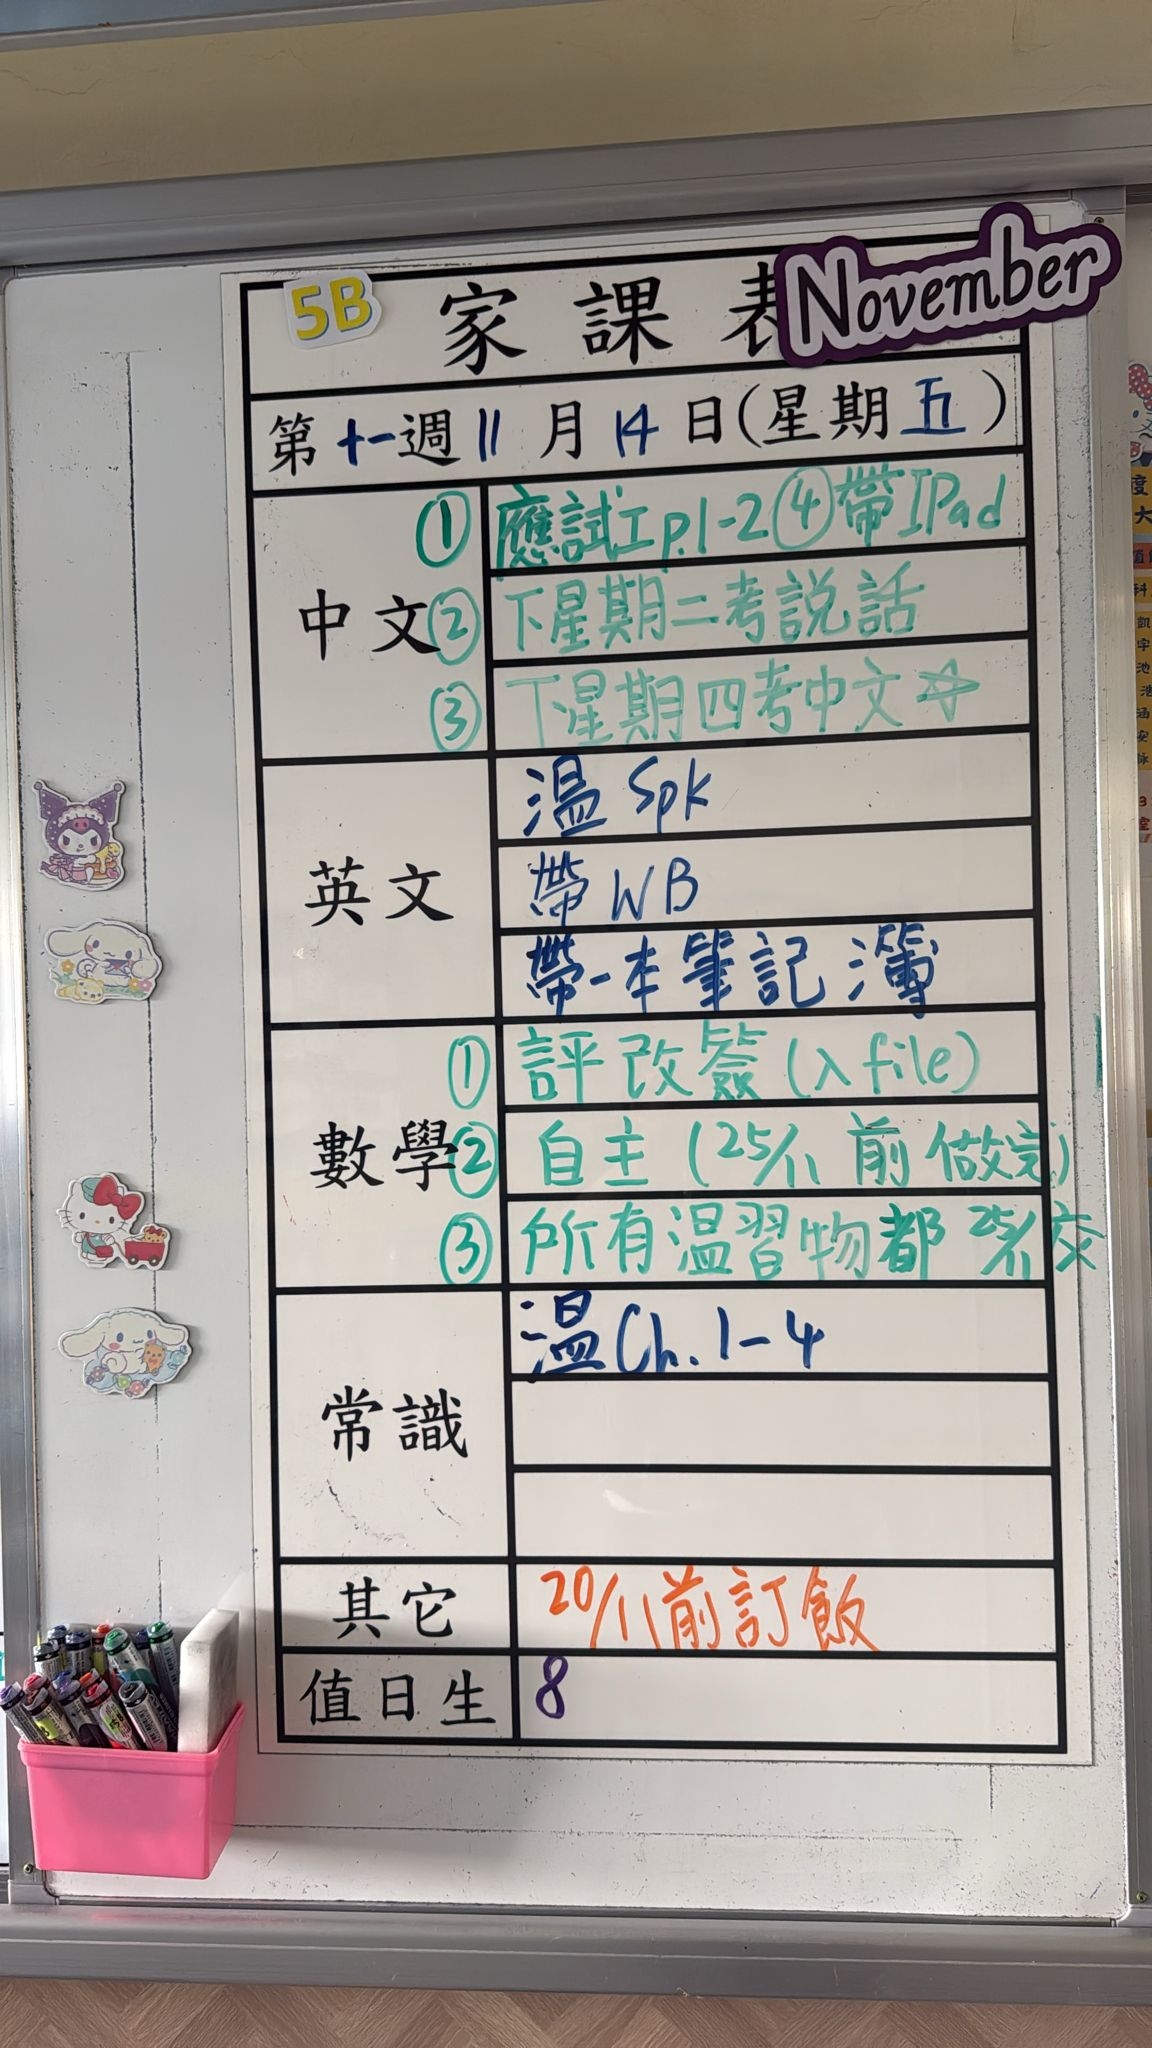 5B 家課表 November
第十一週11月14日(星期五)
中文
① 應試工p.1-2 ④帶IPad
② 下星期二考説話
③ 下星期四考中文☆
英文
溫Spk
帶WB
帶一本筆記簿
數學
① 評改簽(入file)
② 自主(25/11前做完)
③ 所有溫習物都25/11交
常識
溫Ch.1-4
其它
20/11前訂飯
值日生
8